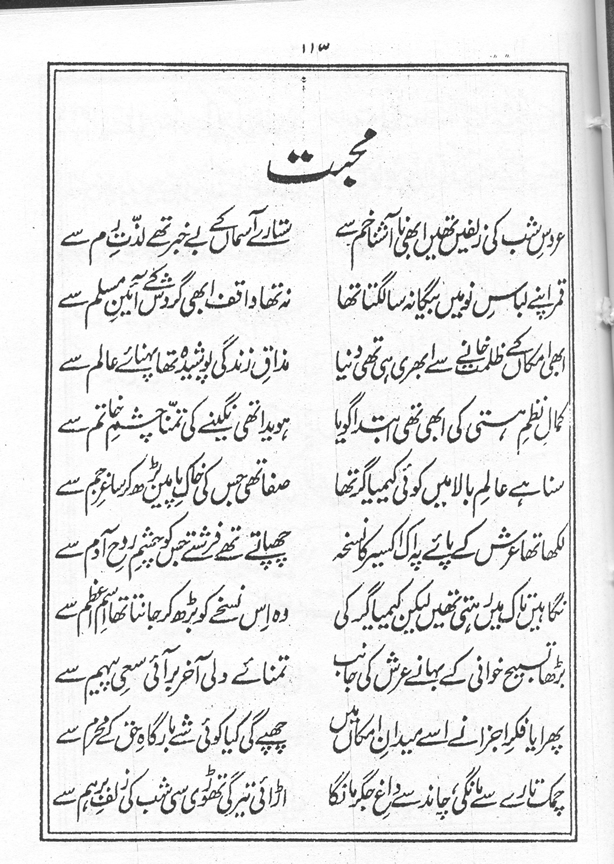 ۱۱۳
محبت
عروسِ شب کی زلفیں تھیں ابھی ناآشنا خم سے ستارے آسماں کے بے خبر تھے لذّتِ رم سے
قمر اپنے لباسِ نو میں بیگانہ سا لگتا تھا نہ تھا واقف ابھی گردش کے آئینِ مسلم سے
ابھی امکاں کے ظلمت خانے سے ابھری ہی تھی دنیا مذاقِ زندگی پوشیدہ تھا پہنائے عالم سے
کمالِ نظمِ ہستی کی ابھی تھی ابتدا گویا ہویدا تھی نگینے کی تمنّا چشمِ خاتم سے
سنا ہے عالمِ بالا میں کوئی کیمیاگر تھا صفا تھی جس کی خاکِ پا میں بڑھ کر ساغرِ جم سے
لکھا تھا عرش کے پائے پہ اک اکسیر کا نسخہ چھپاتے تھے فرشتے جس کو چشمِ روحِ آدم سے
نگاہیں تاک میں رہتی تھیں لیکن کیمیاگر کی وہ اِس نسخے کو بڑھ کر جانتا تھا اسمِ اعظم سے
بڑھا تسبیح خوانی کے بہانے عرش کی جانب تمنائے دلی آخر بر آئی سعیِ پیہم سے
پھرایا فکرِ اجزا نے اسے میدانِ امکاں میں چھپے گی کیا کوئی شے بارگاہِ حق کے محرم سے
چمک تارے سے مانگی، چاند سے داغِ جگر مانگا اڑائی تیرگی تھوڑی سی شب کی زلفِ برہم سے